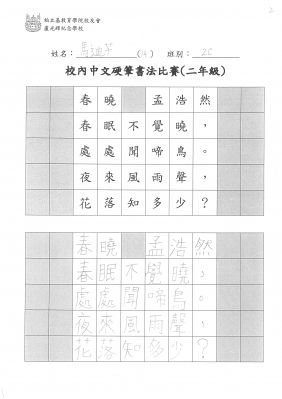 柏立基教育學院校友會
盧光輝紀念學校
姓名： 馬 (14) 班別：
校內中文硬筆書法比賽(二年級)
春曉 孟浩然
春眠不覺曉，
處處聞啼鳥。
夜來風雨聲，
花落知多少？
春曉 孟浩然
春眠不覺曉，
處處聞啼鳥。
夜來風雨聲，
花落知多少？